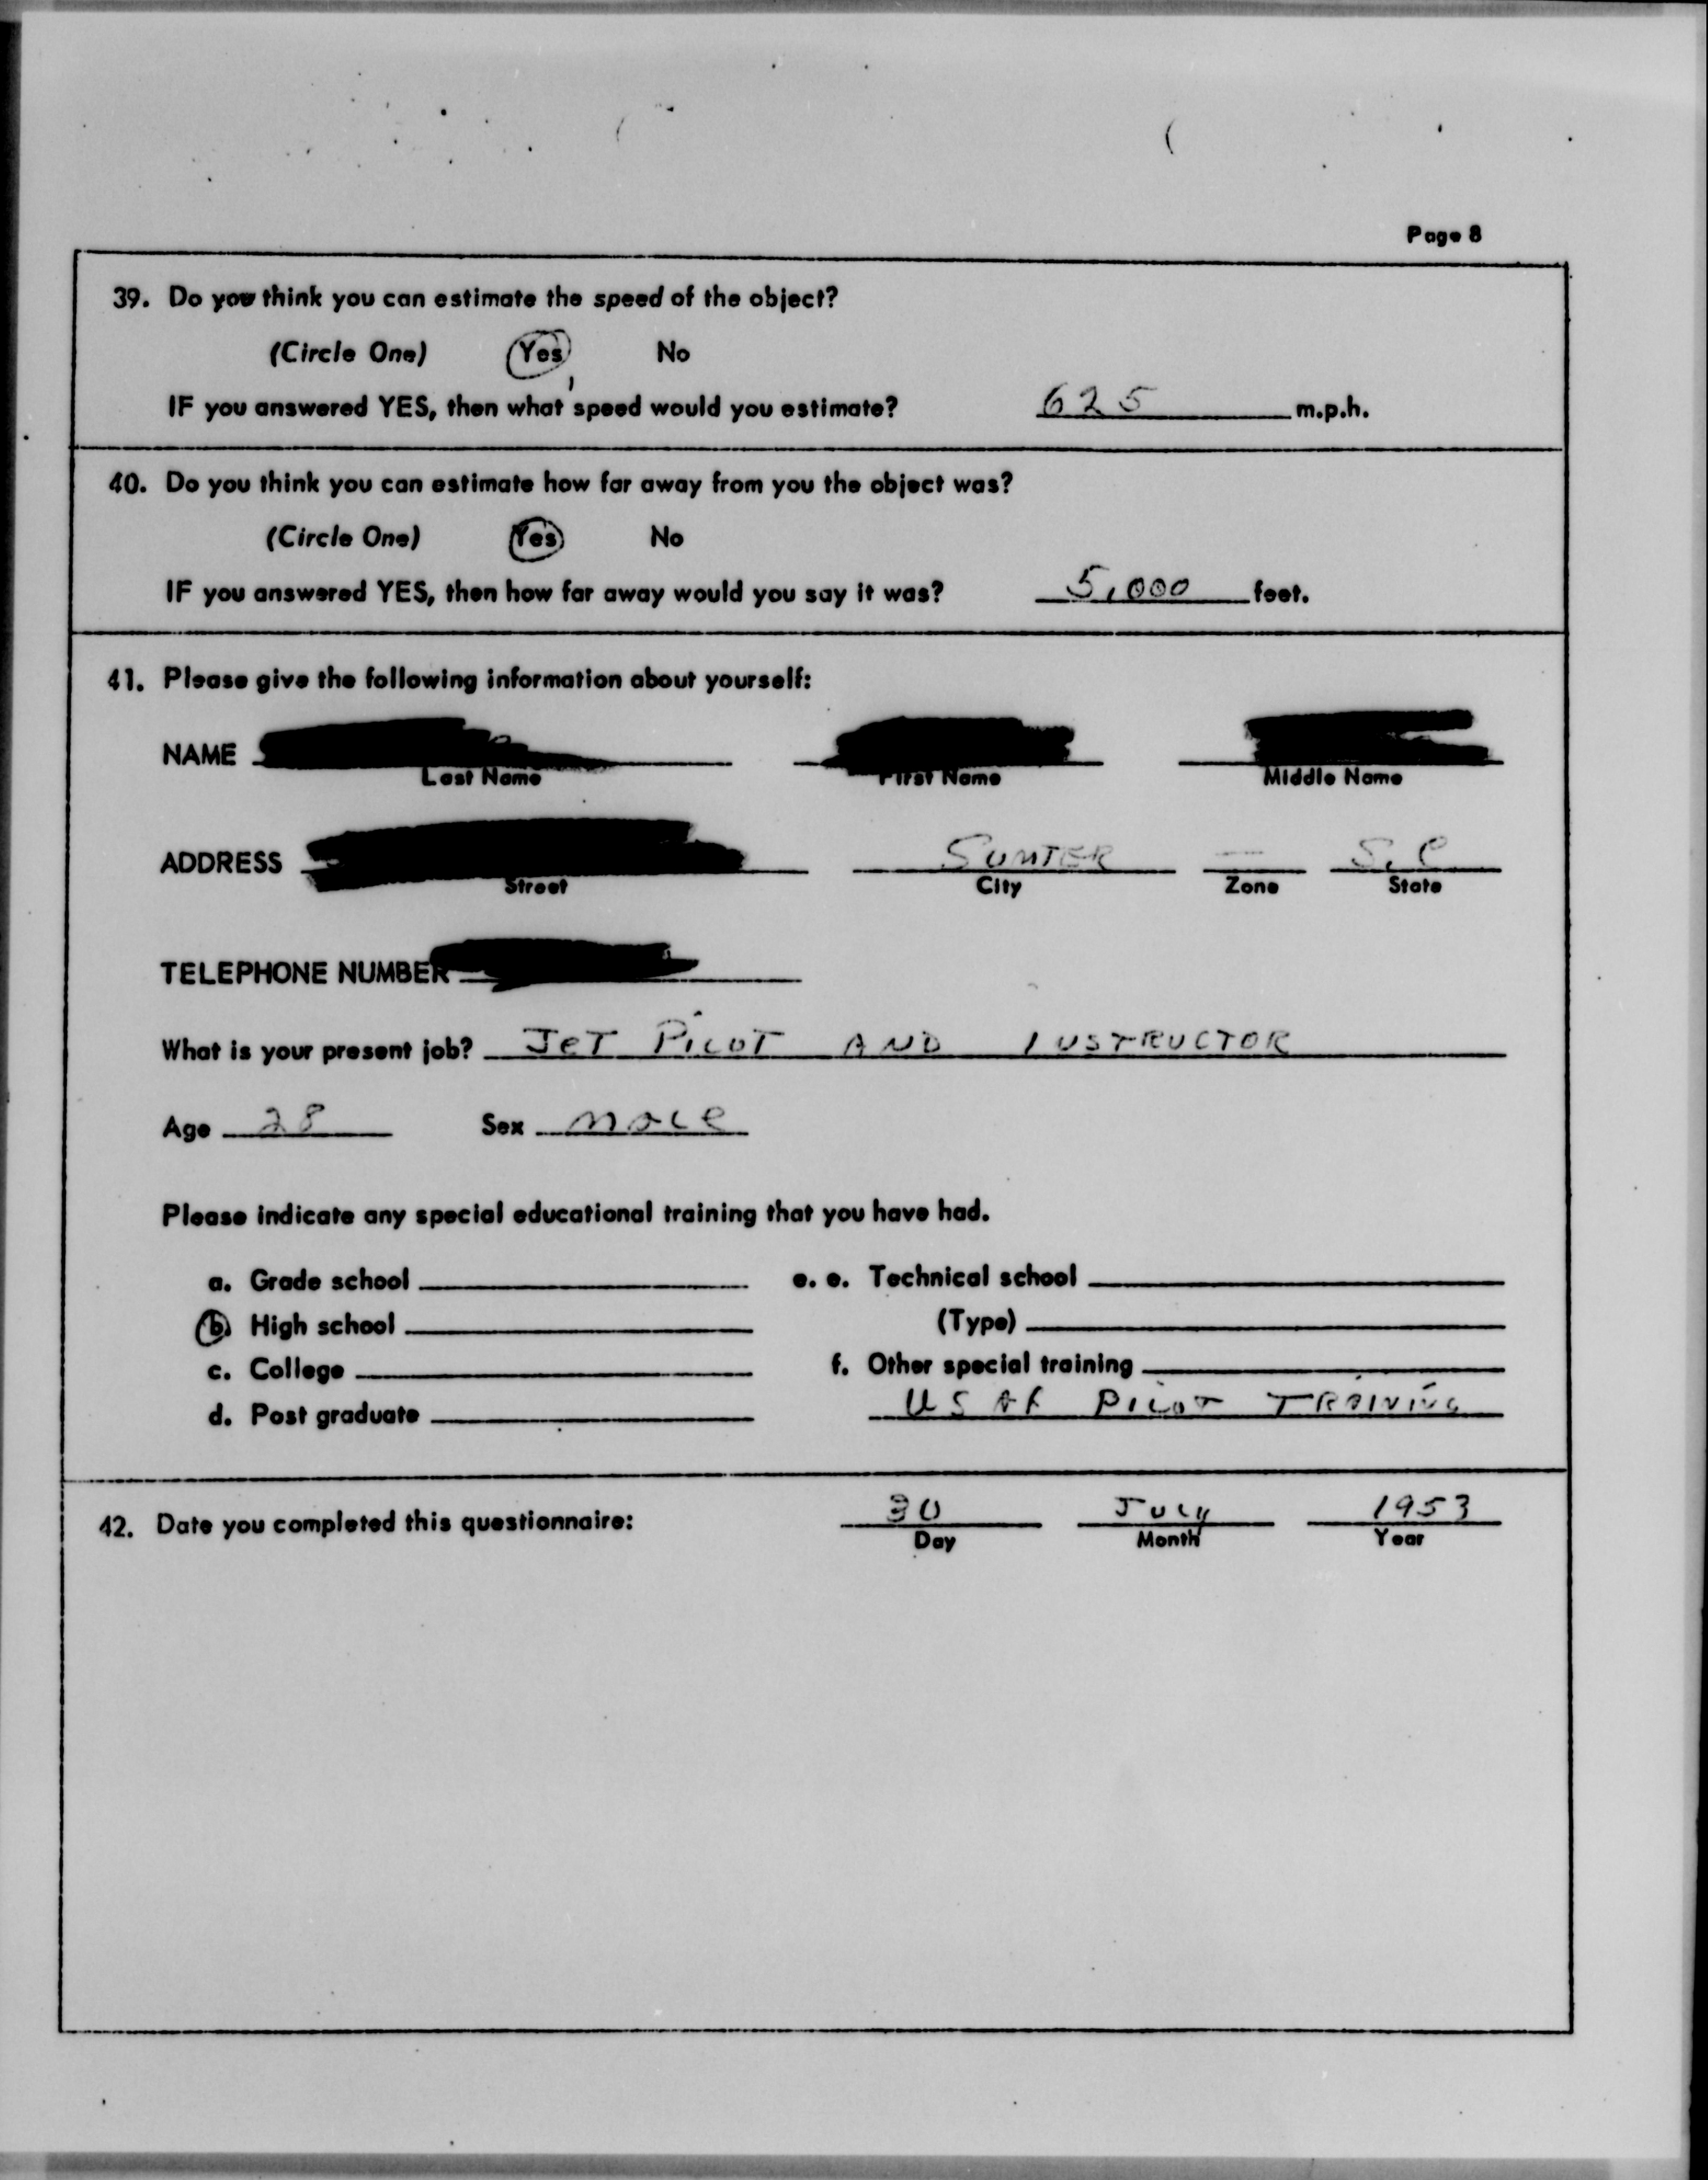 Page 8
39. Do you think you can estimate the speed of the object?
(Circle One) Yes No
IF you answered YES, then what speed would you estimate? 625 m.p.h.
40. Do you think you can estimate how far away from you the object was?
(Circle One) Yes No
IF you answered YES, then how far away would you say it was? 5,000 feet.
41. Please give the following information about yourself:
NAME
Last Name First Name Middle Name
ADDRESS SUMTER — S.C
Street City Zone State
TELEPHONE NUMBER
What is your present job? JET PILOT AND INSTRUCTOR
Age 28 Sex male
Please indicate any special educational training that you have had.
a. Grade school e. e. Technical school
b. High school (Type)
c. College f. Other special training
d. Post graduate USAF PILOT TRAINING
42. Date you completed this questionnaire: 30 July 1953
Day Month Year